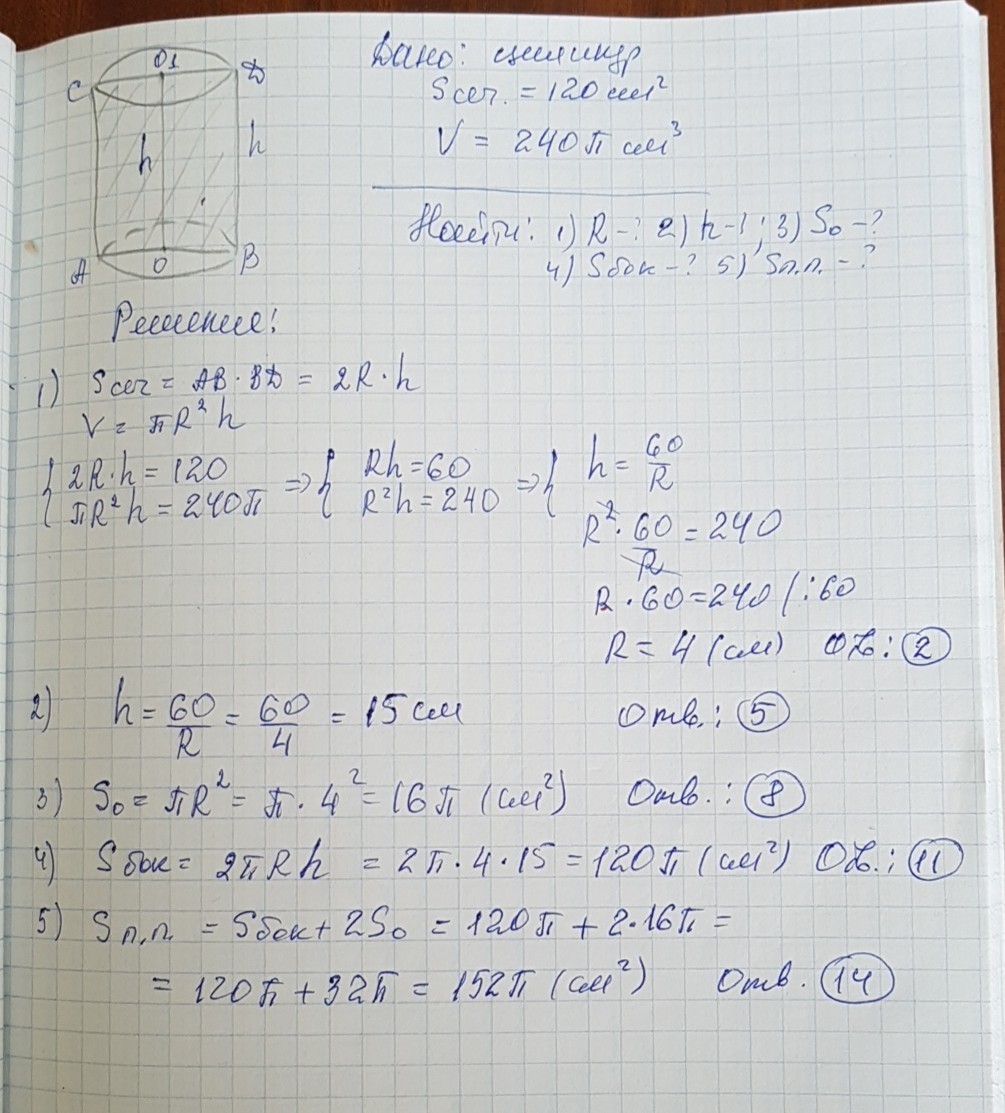 O1
C
D
h
h
A
O
B
Дано: цилиндр
Sсеч. = 120 см²
V = 240π см³
Найти: 1) R-? 2) h-?; 3) So-?
4) Sбок-? 5) Sп.п.-?
Решение:
1) Sсеч = AB·BD = 2R·h
V = πR²h
{ 2R·h = 120 => { Rh = 60 => { h = 60/R
πR²h = 240π R²h = 240
R²·60/R = 240
R·60 = 240 /:60
R = 4 (см) От.: 2
2) h = 60/R = 60/4 = 15 см Отв.: 5
3) So = πR² = π·4² = 16π (см²) Отв.: 8
4) Sбок = 2πRh = 2π·4·15 = 120π (см²) От.: 11
5) Sп.п. = Sбок + 2So = 120π + 2·16π =
= 120π + 32π = 152π (см²) Отв. 14